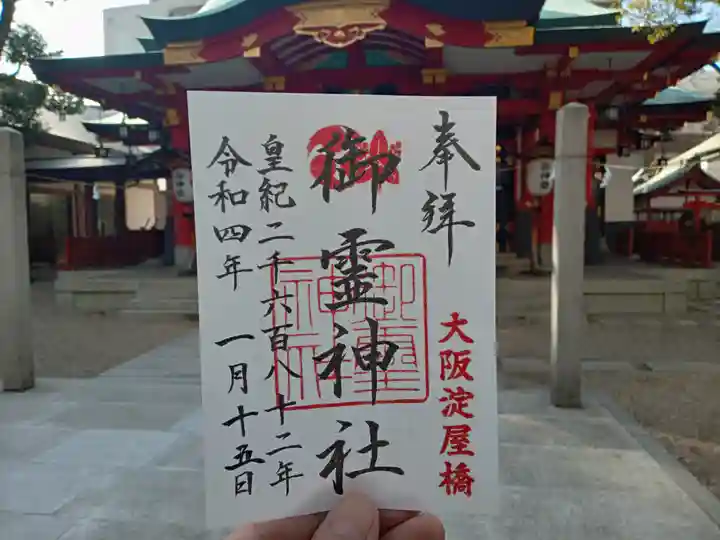 奉拝
大阪淀屋橋
御霊神社
皇紀二千六百八十二年
令和四年 一月十五日